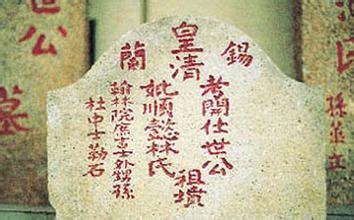 錫蘭
皇清
考開仕世公
妣順懿林氏
祖墳
翰林院庶吉士外甥孫
杜中士勒石
世公
墓
民
孫並立